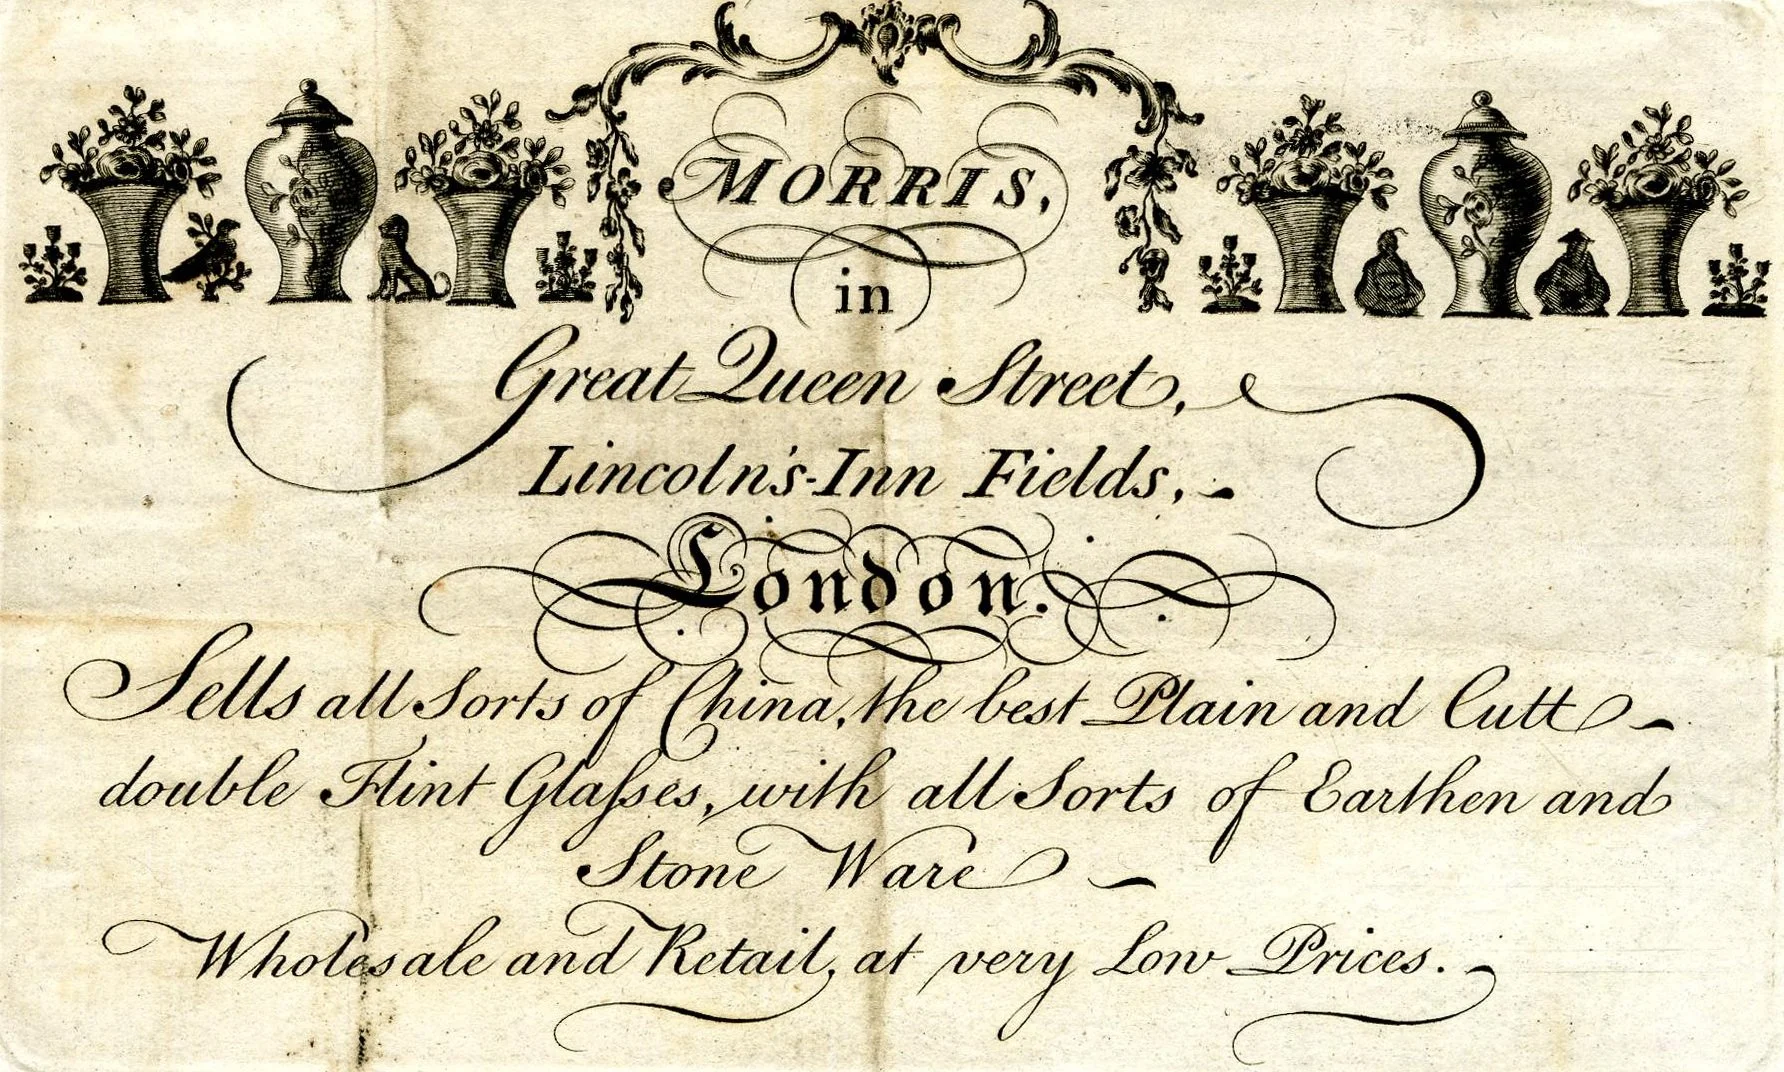 MORRIS,
in
Great Queen Street,
Lincoln's-Inn Fields,
London.
Sells all Sorts of China, the best Plain and Cutt
double Flint Glaſses, with all Sorts of Earthen and
Stone Ware
Wholesale and Retail, at very Low Prices.